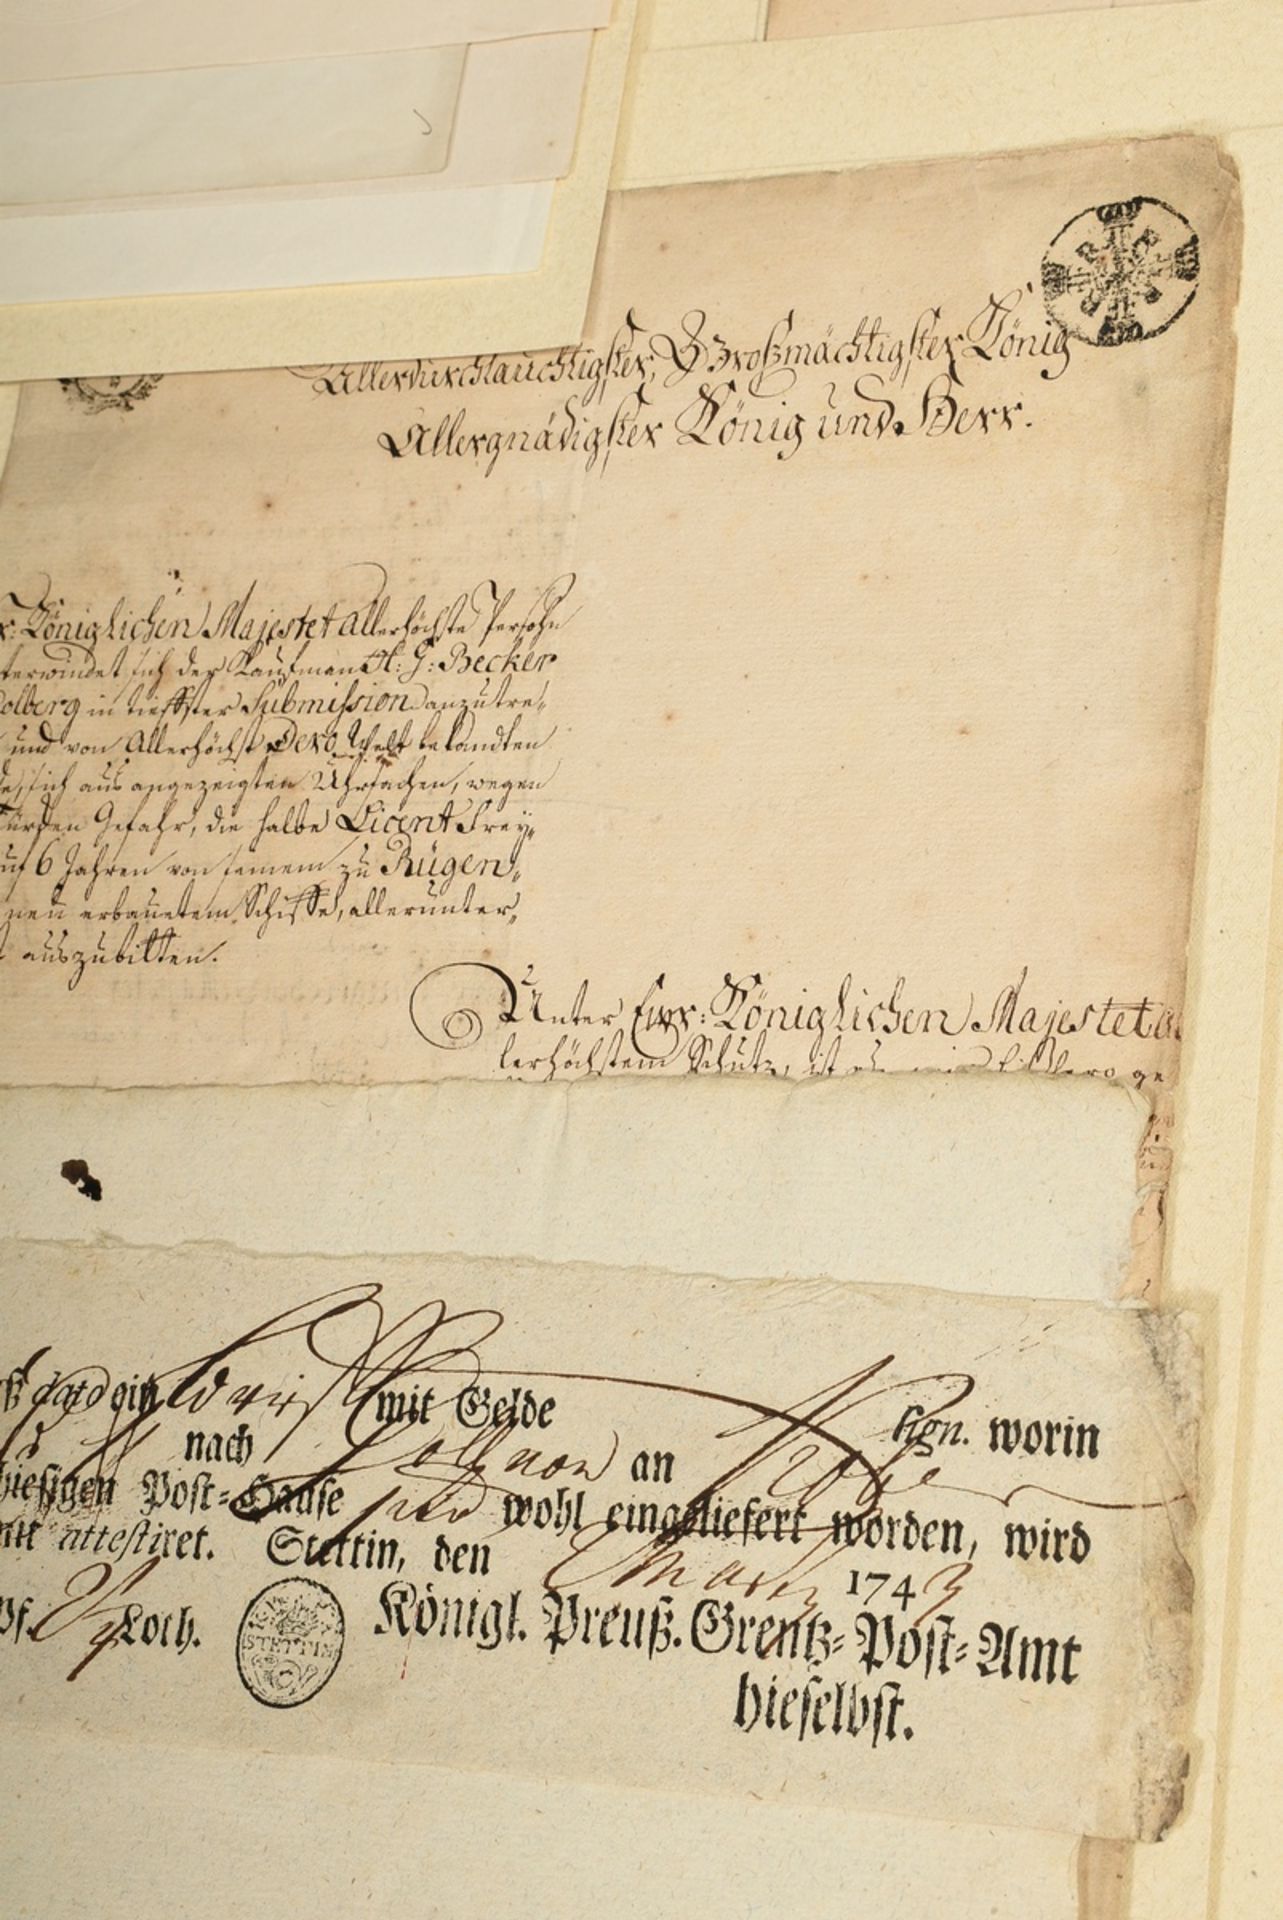 Allerdurchlauchtigster, Großmächtigster König
Allergnädigster König und Herr.
Königlichen Majestet allerhöchste Persohn
terwindet sich der Kaufman H: G: Becker
olberg in tieffster Submission anzutre-
und von Allerhöchst Dero Welt bekandten
sich aus angezeigten Uhrsachen, wegen
Gefahr, die halbe Licent Frey-
6 Jahren von seinem zu Rügen-
neu erbauetem Schiffe, allerunter-
auszubitten.
Unter Ewr: Königlichen Majestet al
lerhöchstem Schutz, ist
ge
mit Gelde
hgn. worin
nach
an
hiesigen Post-Hause
wohl eingeliefert worden, wird
attestiret. Stettin, den
Martz 1743
Loth.
STETTIN
Königl. Preuß. Grentz-Post-Amt
hieselbst.